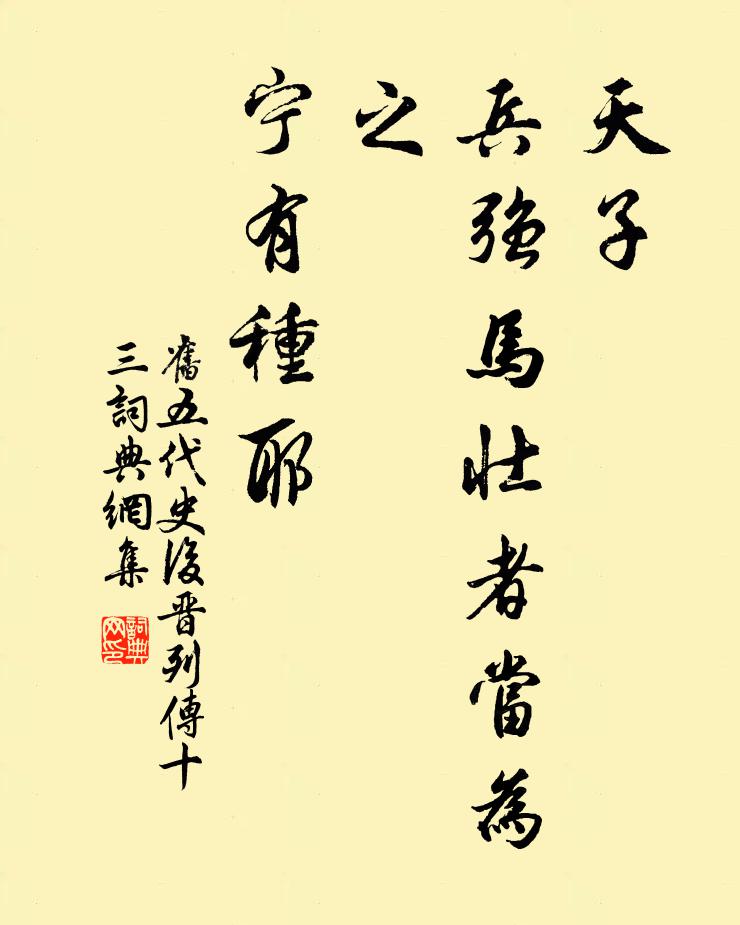 天子
兵強馬壯者當為
之
宁有種耶
舊五代史後晋列傳十
三詞典網集
詞典
网印